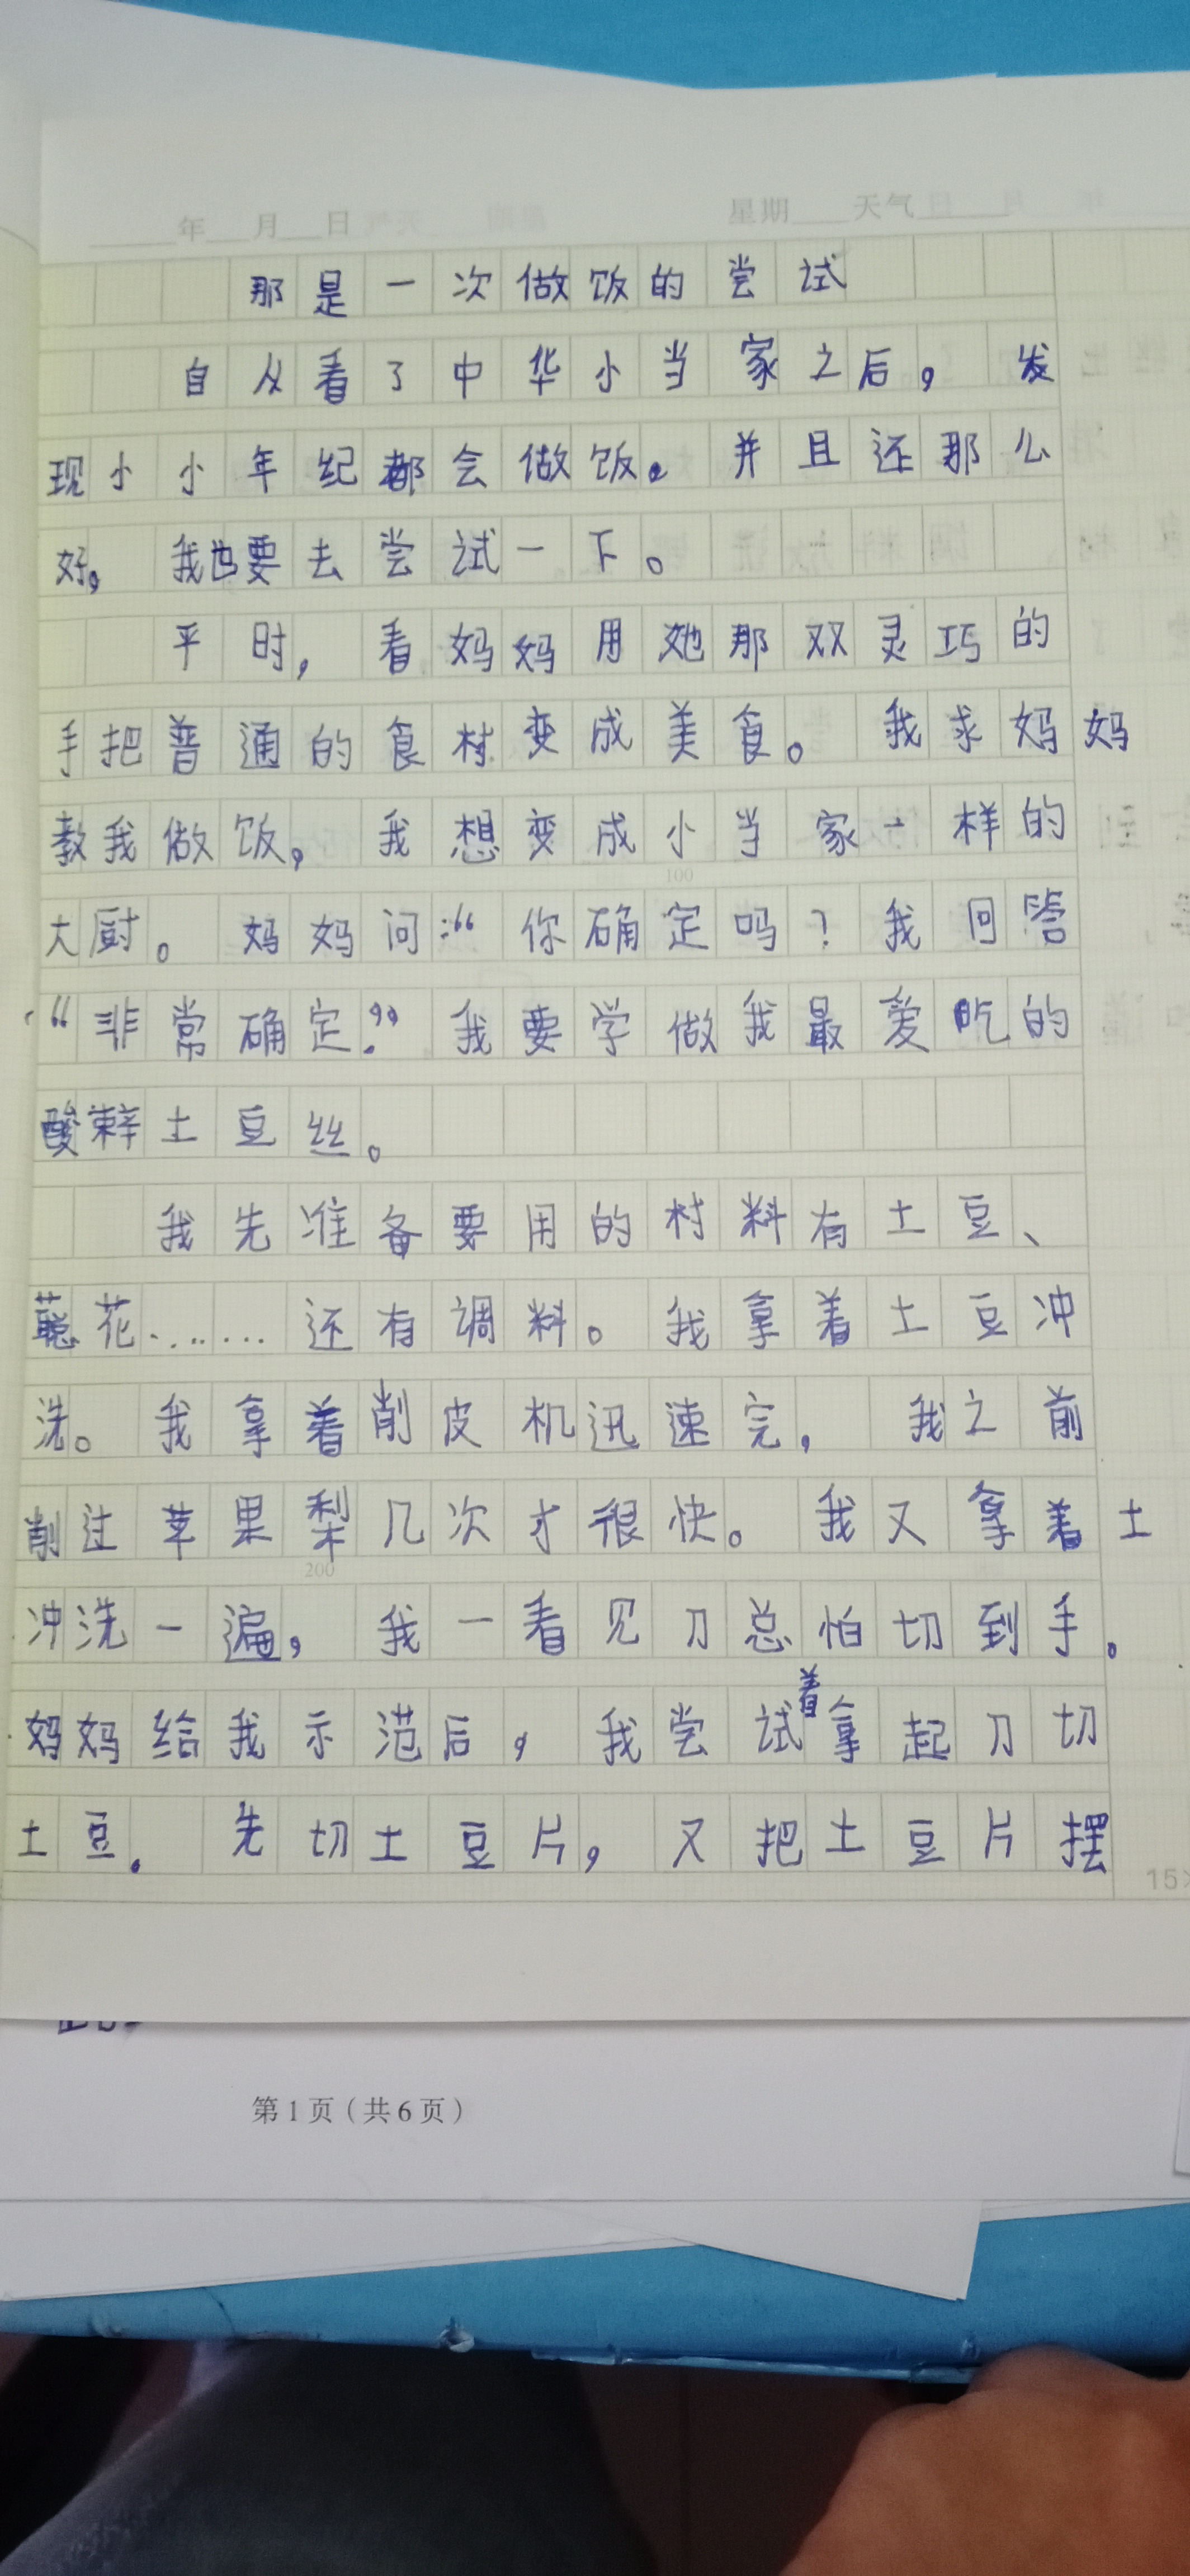 年 月 日 星期 天气
那是一次做饭的尝试
自从看了中华小当家之后，发
现小小年纪都会做饭。并且还那么
好，我也要去尝试一下。
平时，看妈妈用她那双灵巧的
手把普通的食材变成美食。我求妈妈
教我做饭，我想变成小当家一样的
大厨。妈妈问：“你确定吗？我回答
“非常确定.”我要学做我最爱吃的
酸辣土豆丝。
100
我先准备要用的材料有土豆、
葱花……还有调料。我拿着土豆冲
洗。我拿着削皮机迅速完，我之前
削过苹果梨几次才很快。我又拿着土
200
冲洗一遍，我一看见刀总怕切到手。
妈妈给我示范后，我尝试着拿起刀切
土豆.先切土豆片，又把土豆片摆
15×
第1页（共6页）